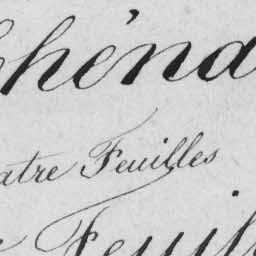 héna
atre Feuilles
Feuil